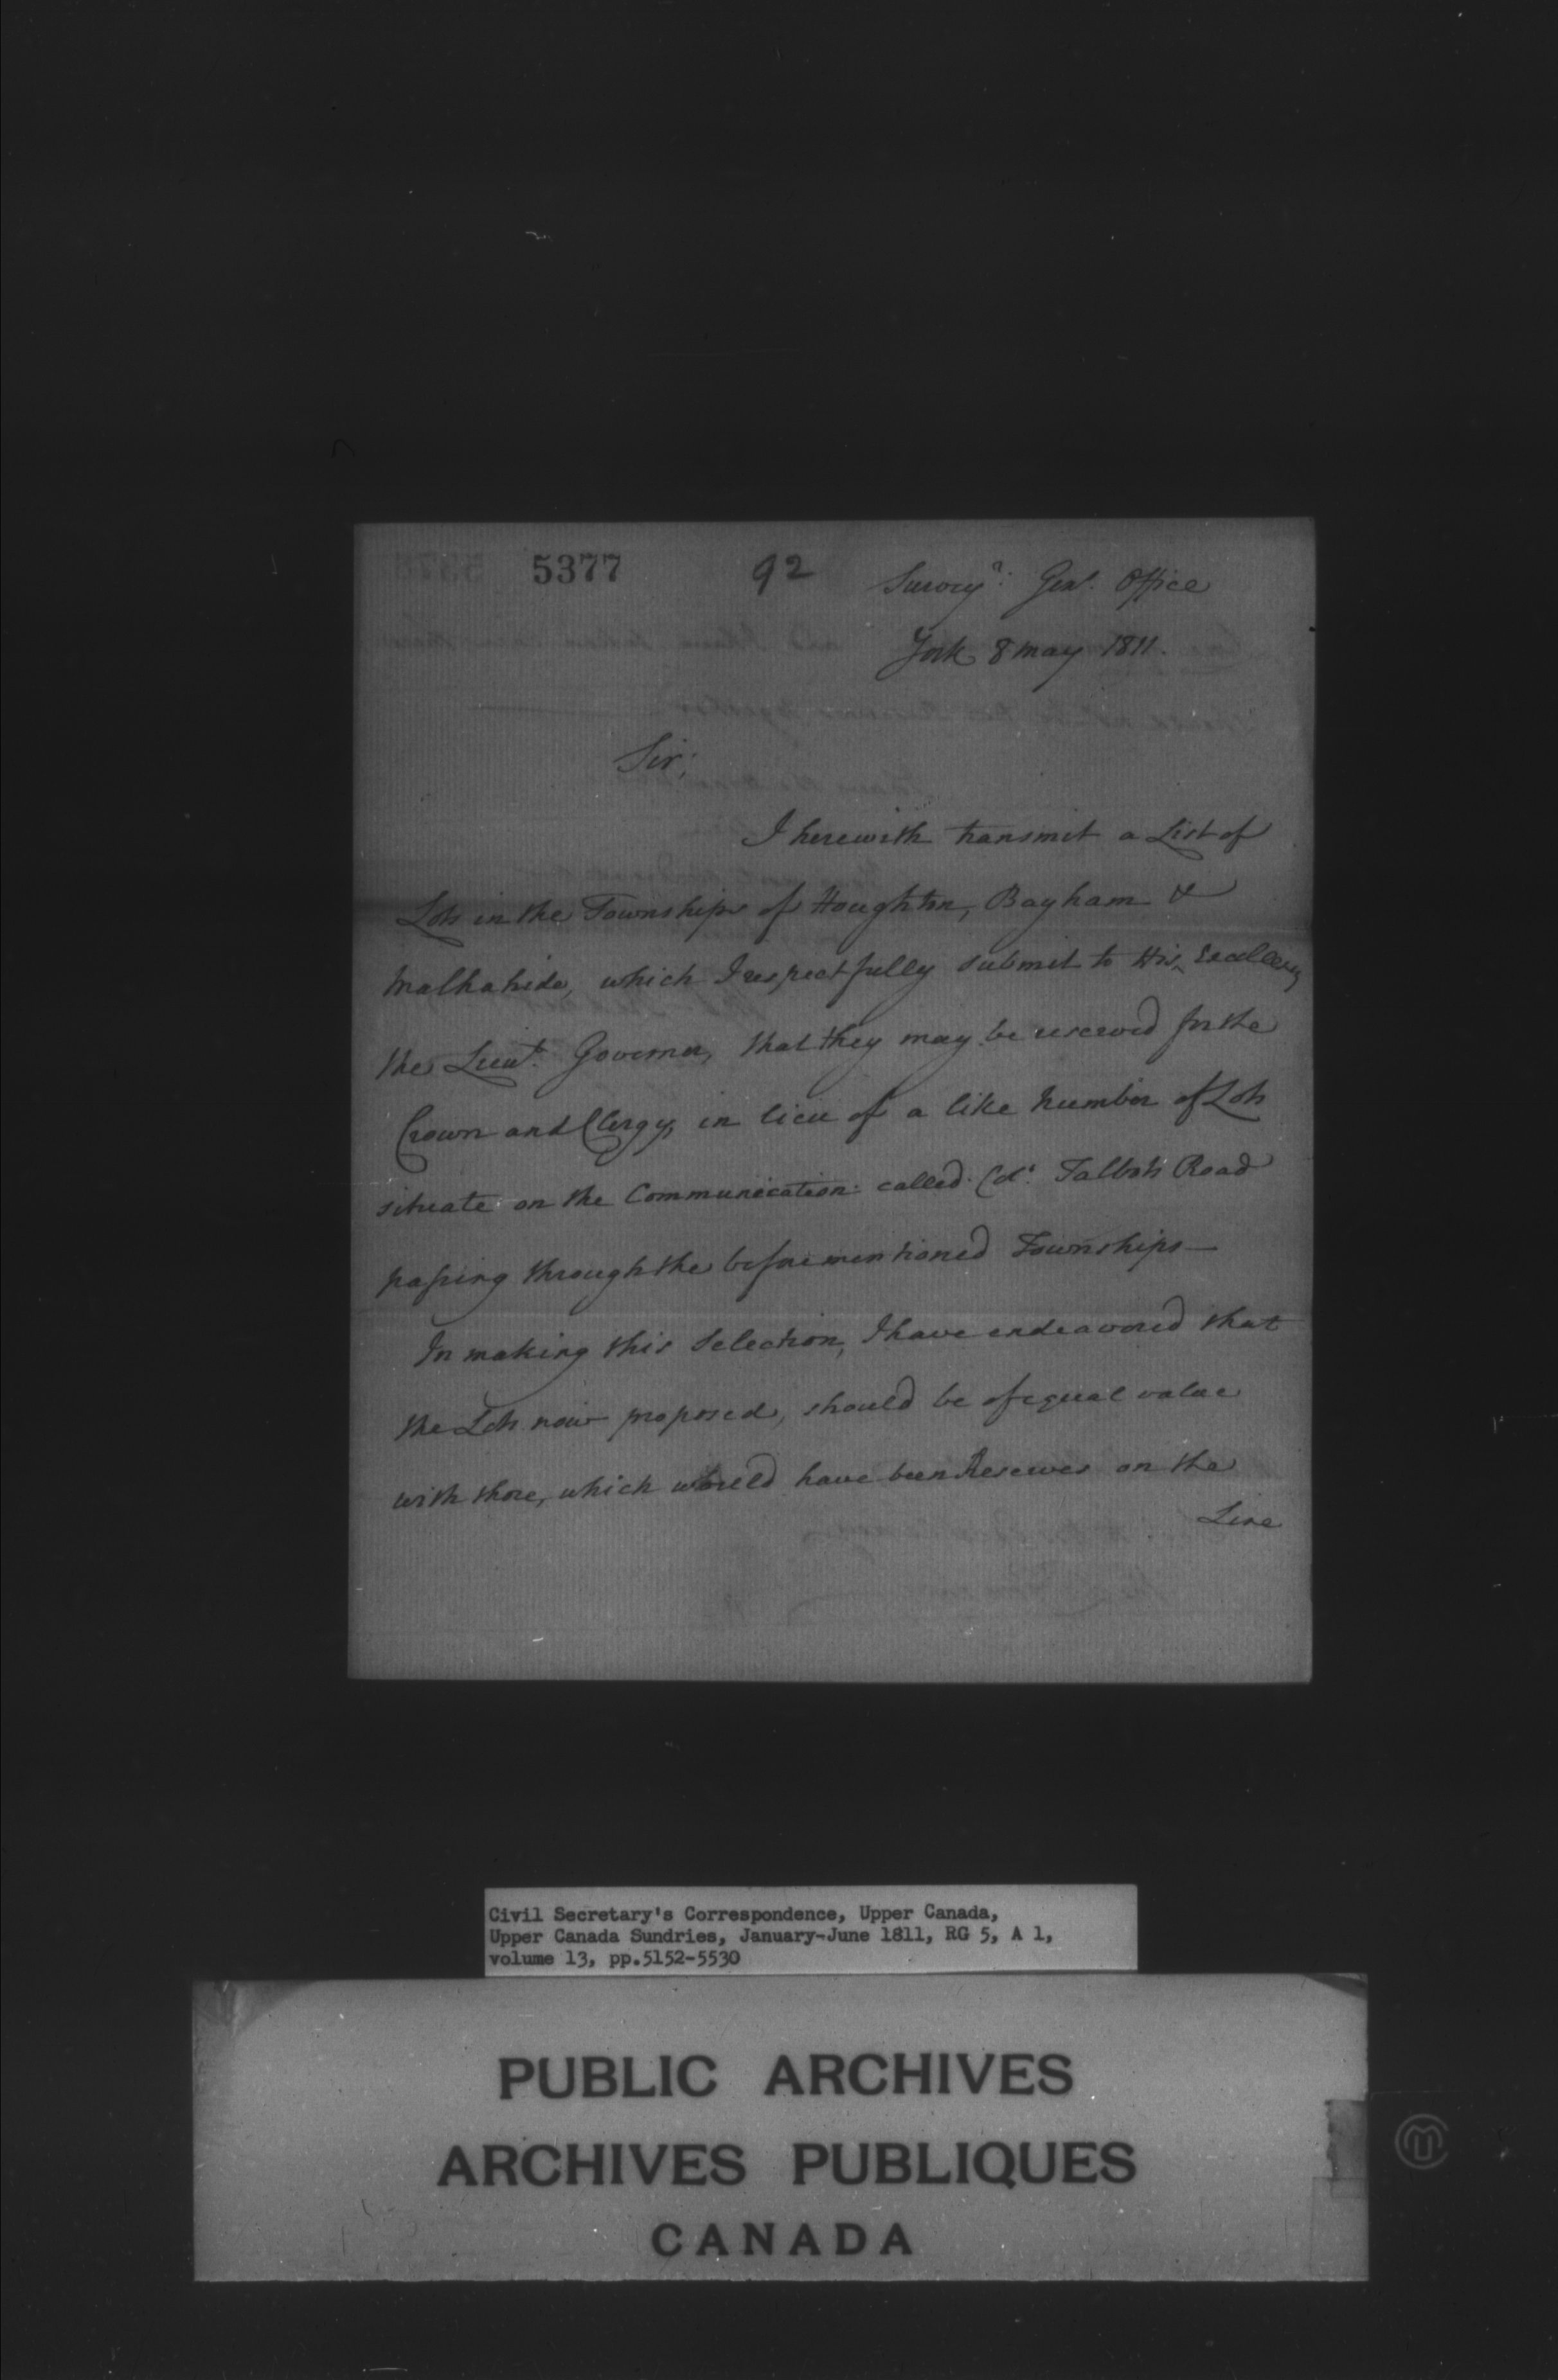 5377 92 Survey.r Gen.l Office
York 8 May 1811.
Sir;
I herewith transmit a List of
Lots in the Townships of Houghton, Bayham &
Malhahide, which I respectfully submit to His Excellency
the Lieut. Governor, that they may be reserved for the
Crown and Clergy, in lieu of a like Number of Lots
situate on the Communication called Col. Talbots Road
passing through the beforementioned Townships—
In making this Selection, I have endeavored that
the Lots now proposed, should be of equal value
with those, which would have been Reserves on the
Line
Civil Secretary's Correspondence, Upper Canada,
Upper Canada Sundries, January-June 1811, RG 5, A 1,
volume 13, pp.5152-5530
PUBLIC ARCHIVES
ARCHIVES PUBLIQUES
CANADA